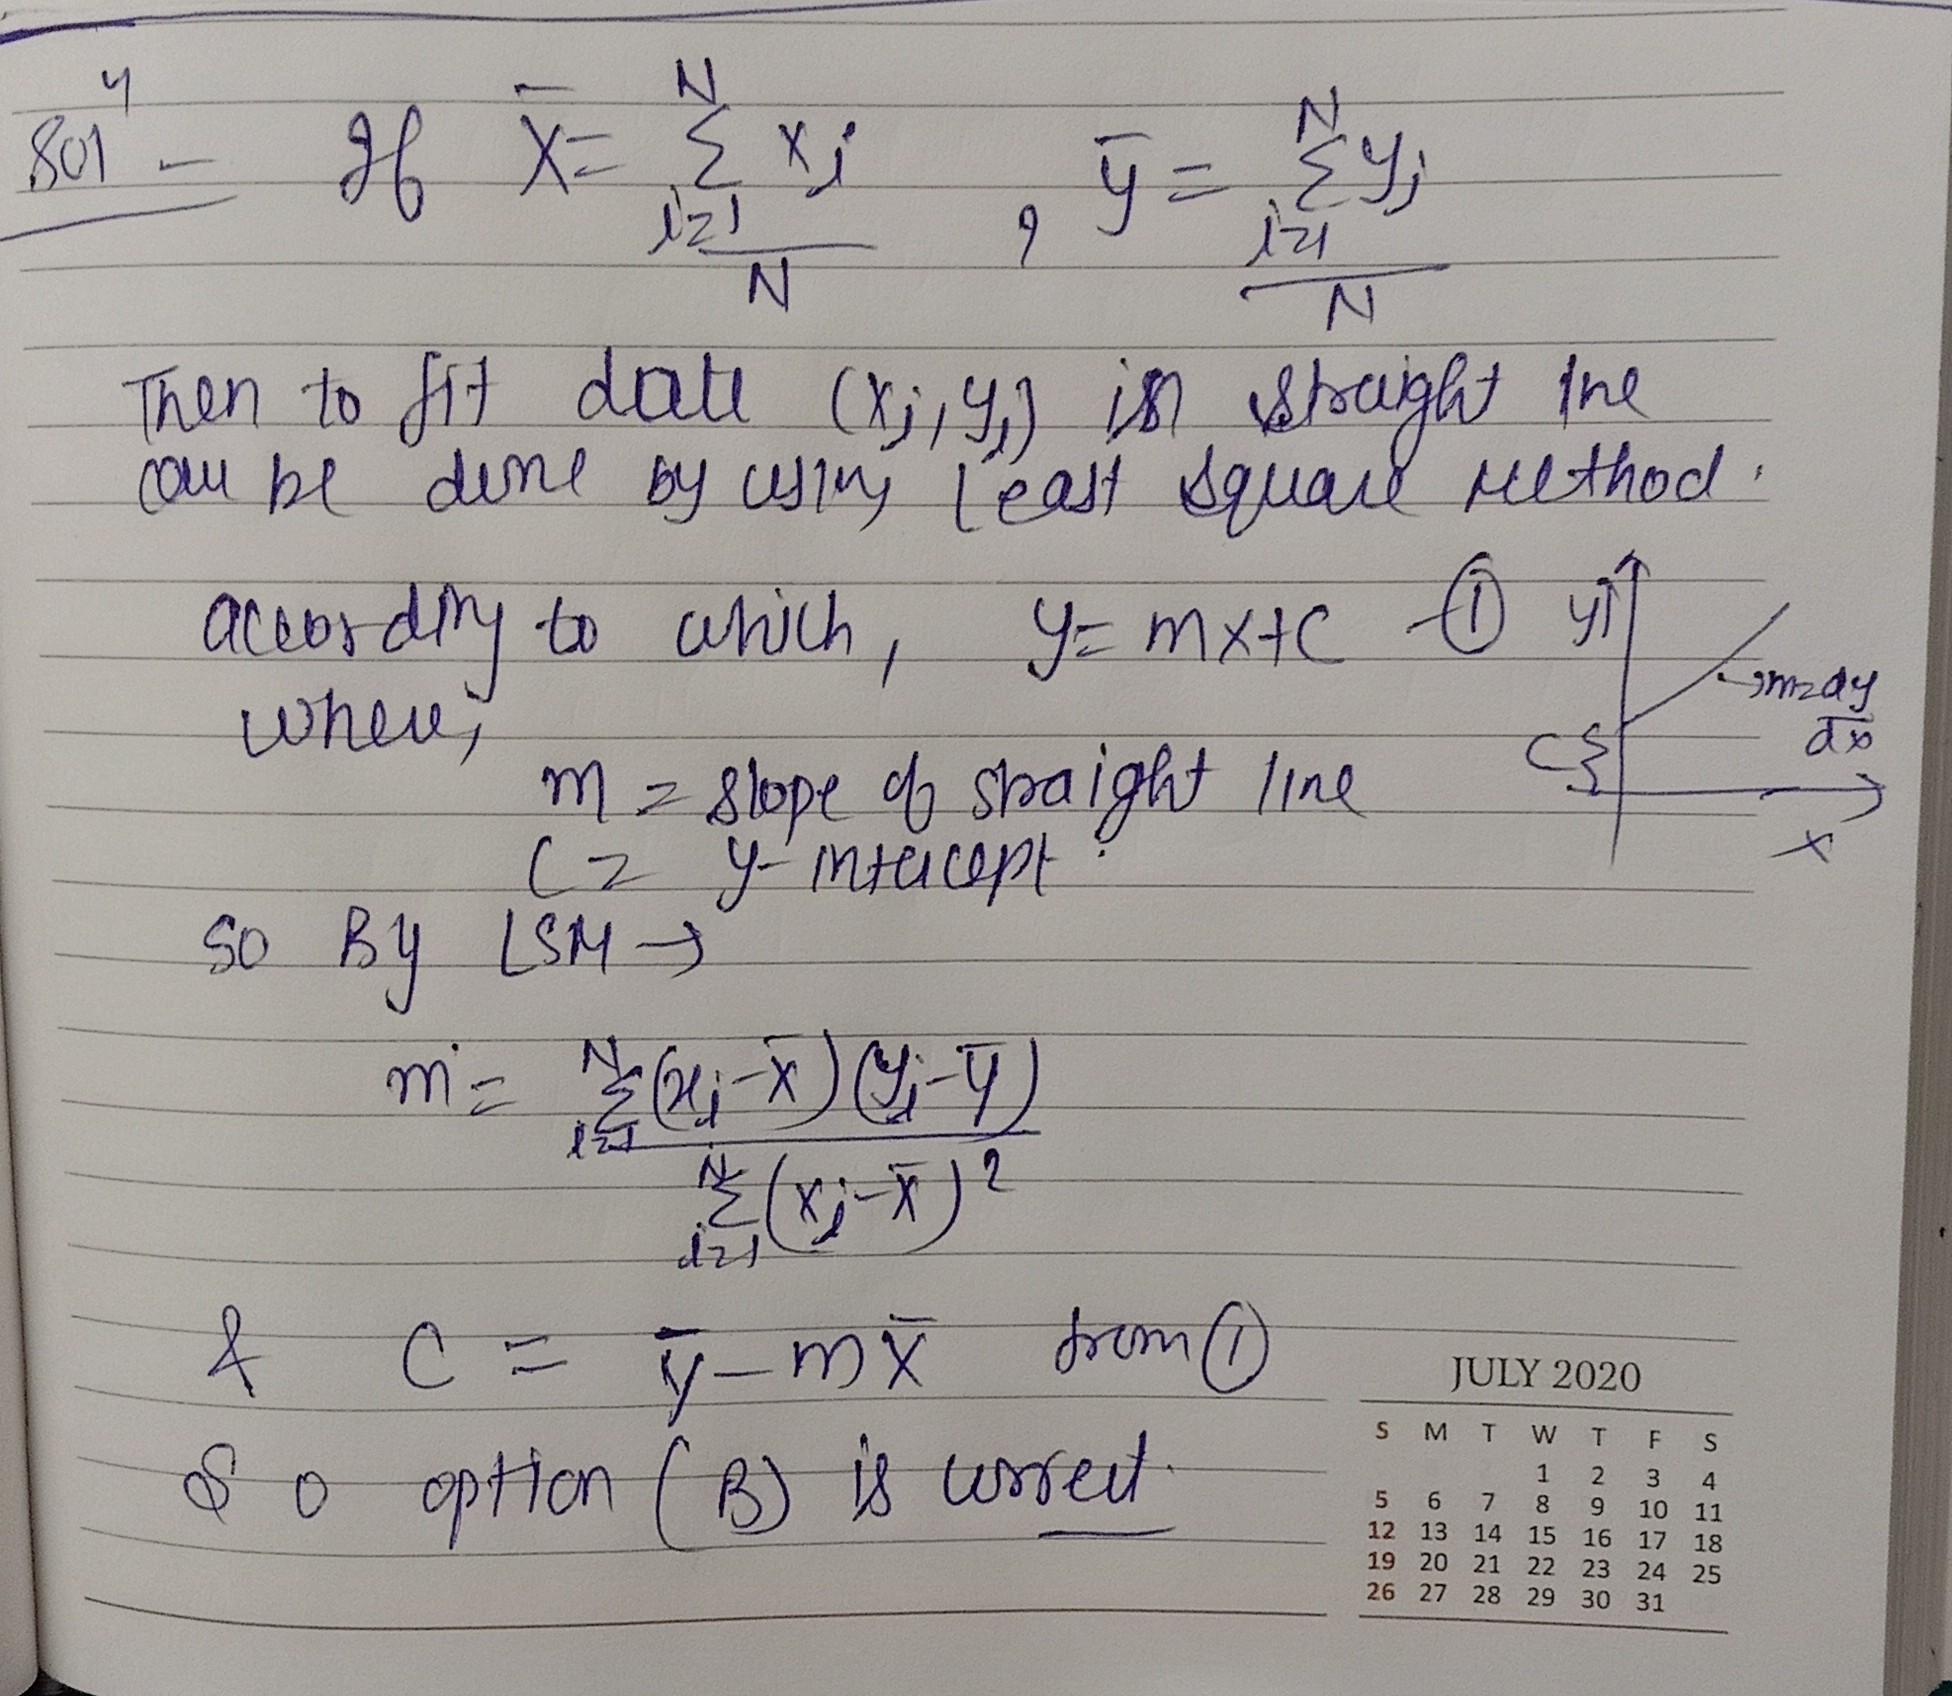 Solⁿ - If x̄ = N Σ i=1 xi / N , ȳ = N Σ i=1 yi / N
Then to fit data (xi, yi) in straight line
can be done by using least square method.
according to which, y = mx+c - ① y
where, m = dy/dx
m = slope of straight line C
C = y-intercept. x
So By LSM →
m = N Σ i=1 (xi - x̄)(yi - ȳ) / N Σ i=1 (xi - x̄)²
& C = ȳ - m x̄ from ①
So option (B) is correct.
JULY 2020
S M T W T F S
1 2 3 4
5 6 7 8 9 10 11
12 13 14 15 16 17 18
19 20 21 22 23 24 25
26 27 28 29 30 31